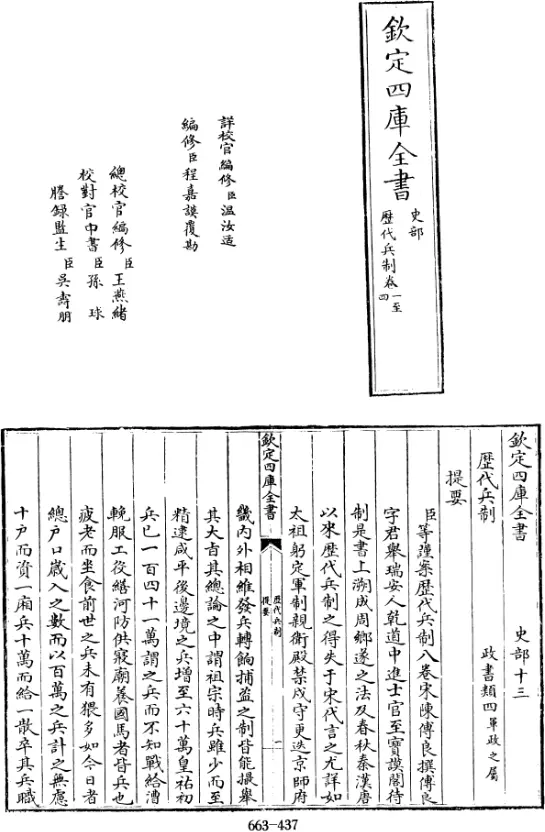 欽定四庫全書
史部
歷代兵制卷一至四
詳校官編修臣溫汝适
編修臣程嘉謨覆勘
總校官編修臣王燕緒
校對官中書臣孫球
謄錄監生臣吳壽朋
欽定四庫全書 史部十三
歷代兵制 政書類四軍政之屬
提要
臣等謹案歷代兵制八卷宋陳傅良撰傅良
字君舉瑞安人乾道中進士官至寶謨閣待
制是書上溯成周鄉遂之法及春秋秦漢唐
以來歷代兵制之得失于宋代言之尤詳如
太祖躬定軍制親衛殿禁戍守更迭京師府
欽定四庫全書
歷代兵制
提要
一
畿內外相維發兵轉餉捕盜之制皆能撮舉
其大㫖其總論之中謂祖宗時兵雖少而至
精逮咸平後邊境之兵增至六十萬皇祐初
兵已一百四十一萬謂之兵而不知戰給漕
輓服工役繕河防供寢廟養國馬者皆兵也
疲老而坐食前世之兵未有猥多如今日者
總戶口嵗入之數而以百萬之兵計之無慮
十戶而資一廂兵十萬而給一散卒其兵職
663-437